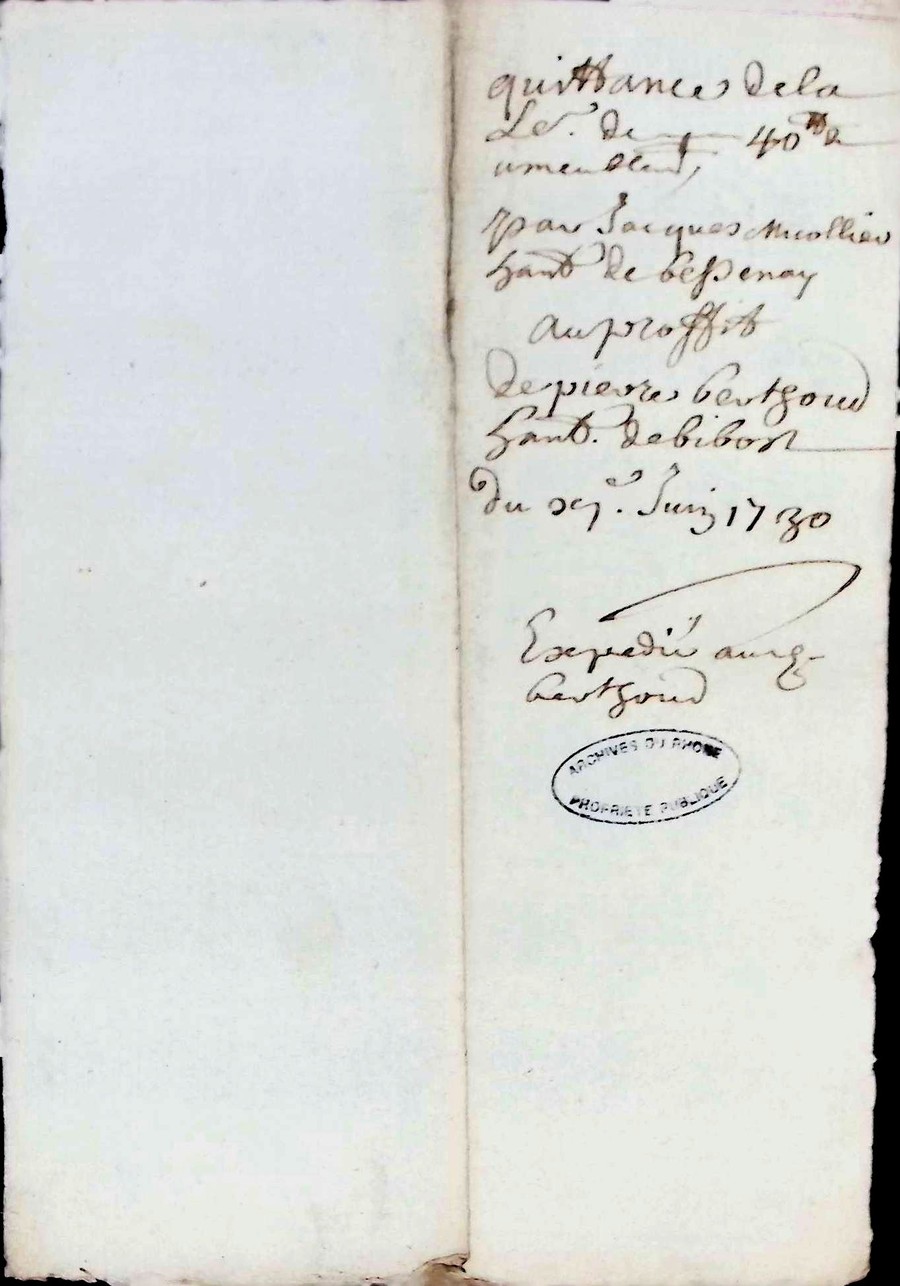 quittance de la
de 40 ₶ &
ameublem.t,
par Jacques Micollier
hant de bessenay
au proffit
de pierre berthoud
hant. de bibost
du xe. Juin 1730
Expedié aud.
berthoud
ARCHIVES DU RHONE
PROPRIETE PUBLIQUE